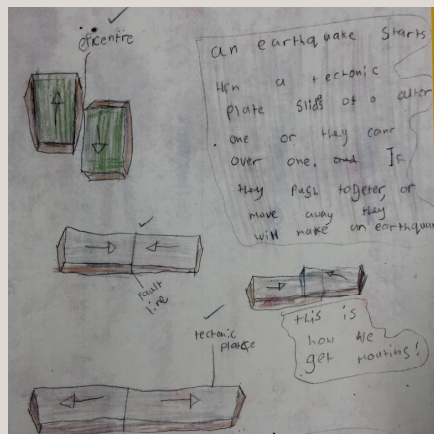 epicentre
an earthquake starts
Hen a tectonic
plate slids of a
one or they
over one. and If
they push together, or
move away they
will make an earthquak
fault
line
tectonic
this is
how we
get